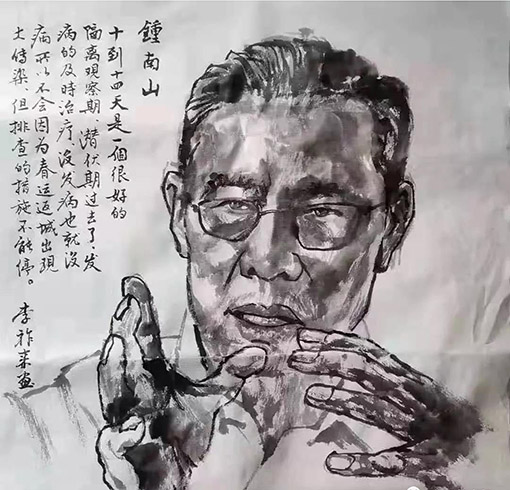 鍾南山
十到十四天是一個很好的
隔离观察期,潜伏期过去了,发
病的及時治疗,没发病也就没
病所以不会因为春运返城出現
大传染,但排查的措施不能停。
李祚来画